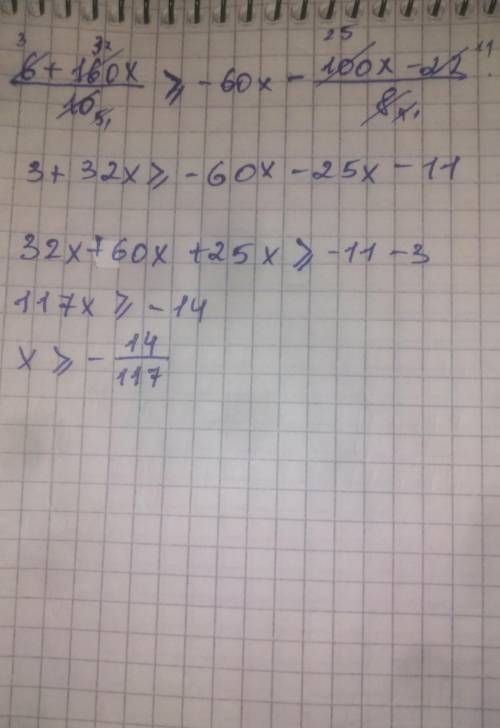 3 32 25 11
6 + 160x / 10 5 1 ⩾ -60x - 100x - 22 / 8 4 1
3 + 32x ⩾ -60x - 25x - 11
32x + 60x + 25x ⩾ -11 - 3
117x ⩾ -14
x ⩾ - 14/117